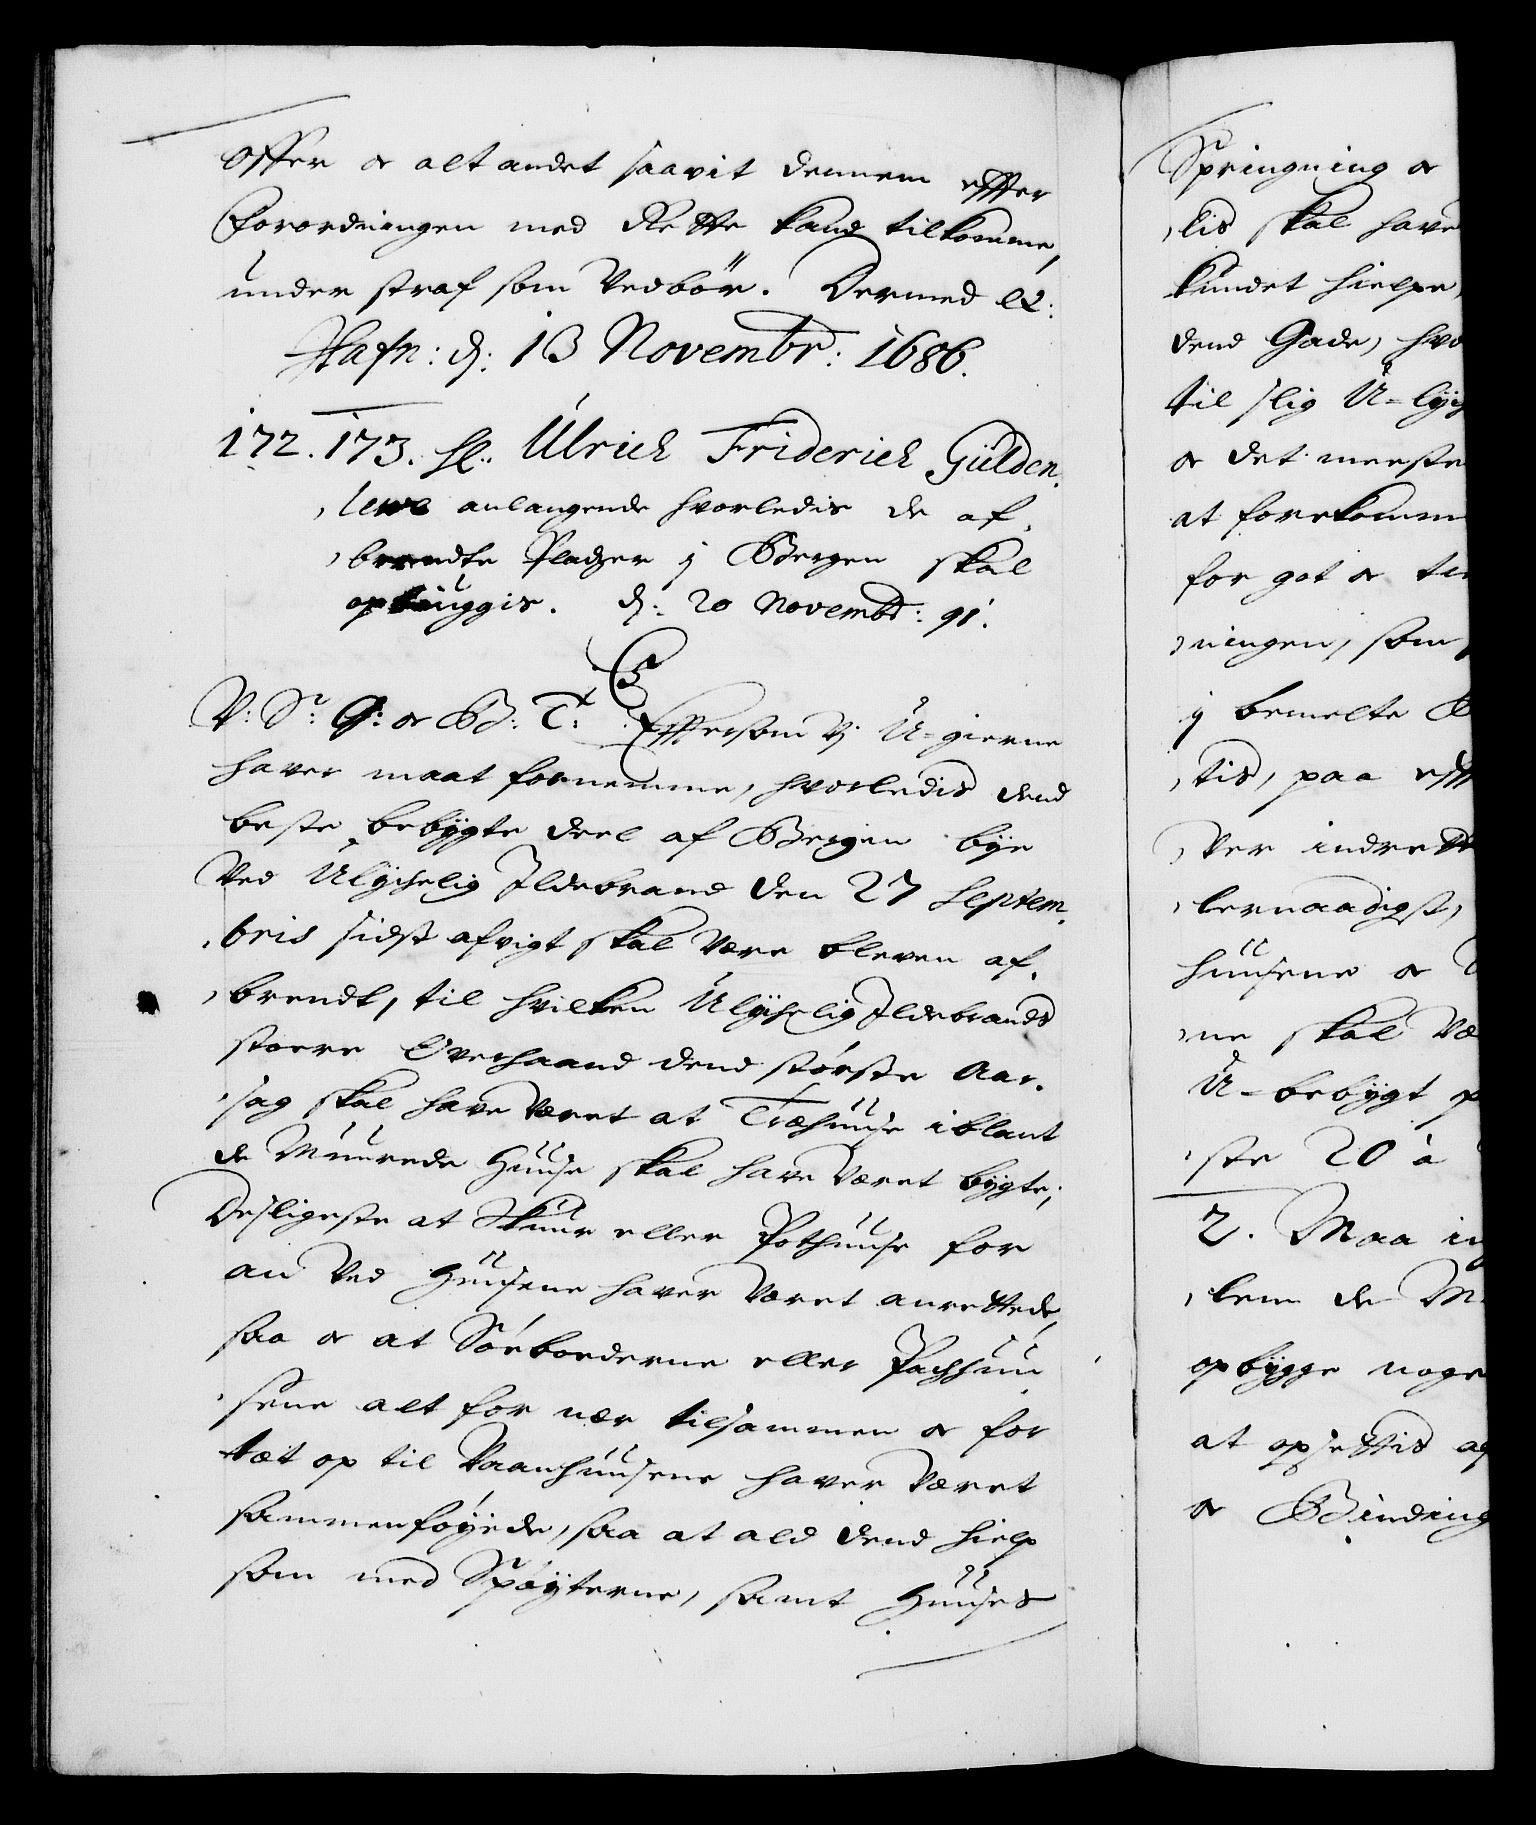 Offer og alt andet saavit dennem effter
Forordningen med Rette kand tilkomme,
under straf som Vedbör. Dermed etc:
Hafn: d: 13 Novembr: 1686.
172. 173. Hl: Ulrich Friderich Gülden,
,lewe anlangende hvorledis de af,
,brendte Pladzer i Bergen skal
opbüggis. d: 20 Novembr: 91.
C5
V: Sr: G: og B: T: Effersom Vi U-gierne
haver maat fornemme, hvorledis dend
beste bebygte deel af Bergen bye
Ved Ulychelig Ildebrand den 27 Septem,
,bris sidst afvigt skal Være bleven af,
,brendt, til hvilken Ulychelig Ildebrands
stoere Overhaand dend störste Aar,
,sag skal have Været at Træhuuse iblant
de Muurede Huuse skal have Været bygte,
Desligeste at Skuur eller Pothuuse for
an Ved Huusene haver Været anrettede,
saa og at Söeboederne eller Pachhuu
,sene alt for nær tilsammen og for
tæt op til Vaanhuusene haver Været
sammenföyede, saa at ald dend hielp
som med Spöyterne, samt Huuses
Springning og
,lis skal have
kundet hielpe,
dend Gade, hvo
til slig U-lych
og det meeste
at forekomm
for got og
,ningen, som
i bemelte B
,tis, paa eff
,ver indrett
,lernaadigst,
huusene og
,ne skal Væ
U-bebygt p
,ste 20 à
2. Maa in
,lem de M
opbygge noge
at opsettis af
og Binding